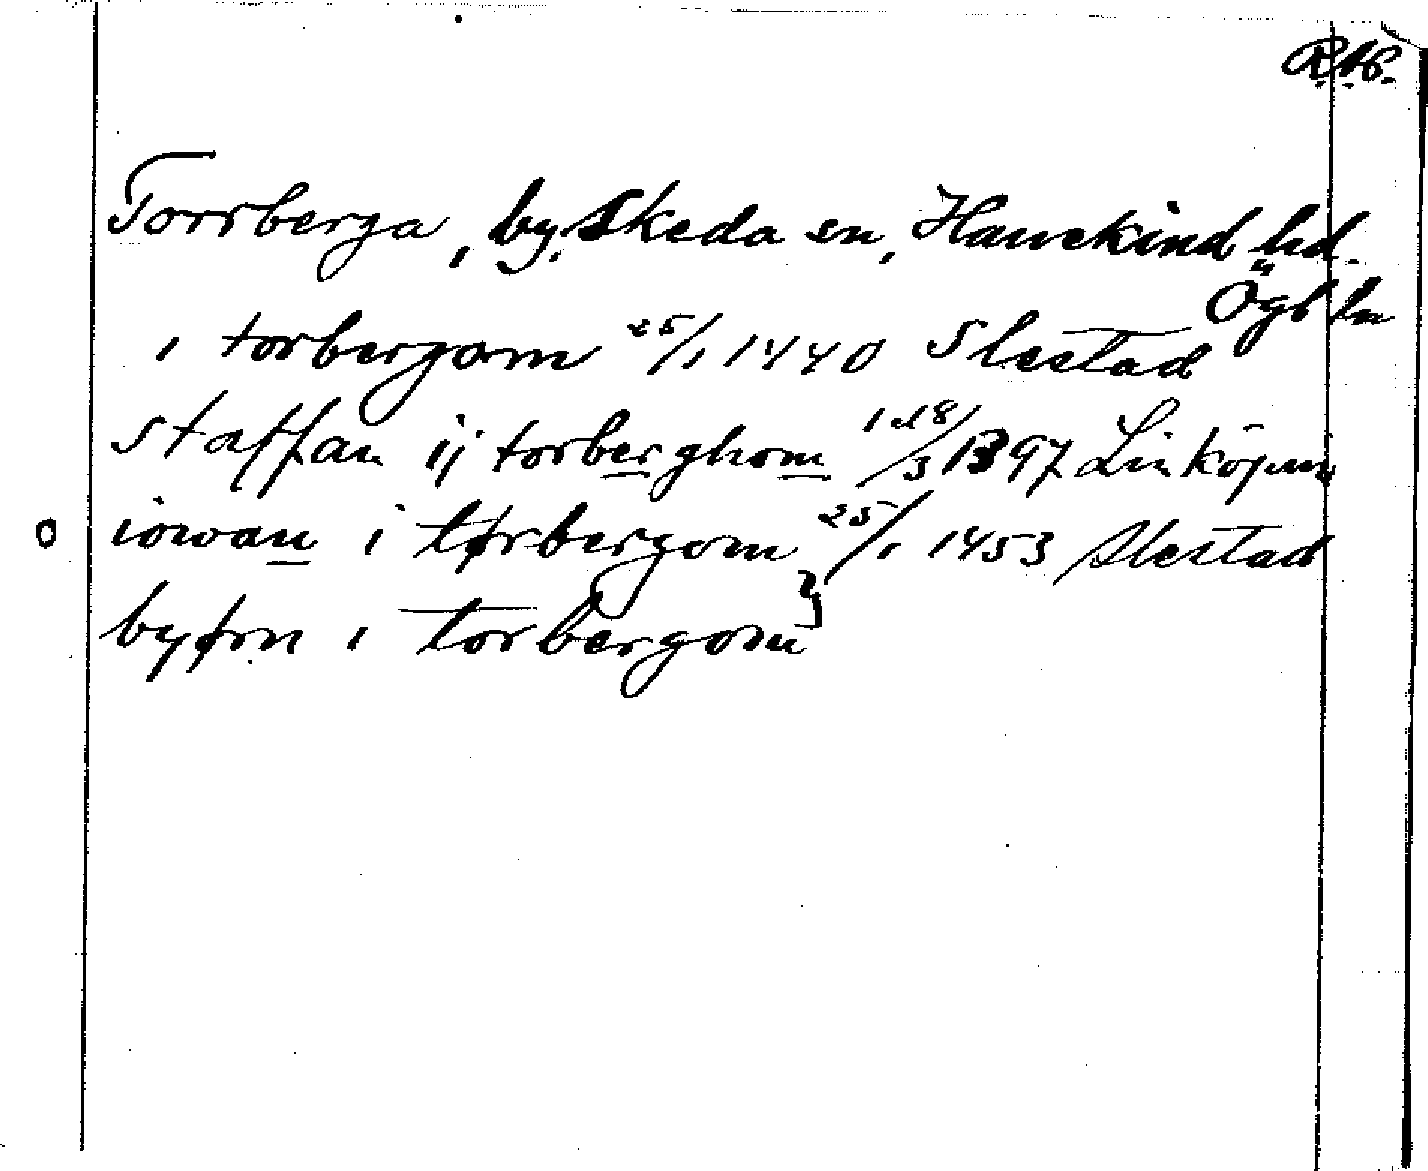 RAP.
Torrberga, by, Skeda sn, Hanekind hd.
Ögl ln
i torbergom 25/1 1440 Slestad
staffan ij torberghom 1 d 18/3 1397 Linköping
iowan i tørbergom 25/1 1453 Slestad
byørn i torbergom